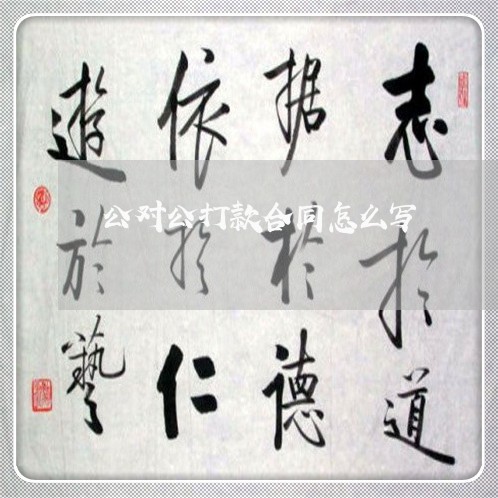 志於道
据於德
依於仁
遊於藝
公对公打款合同怎么写